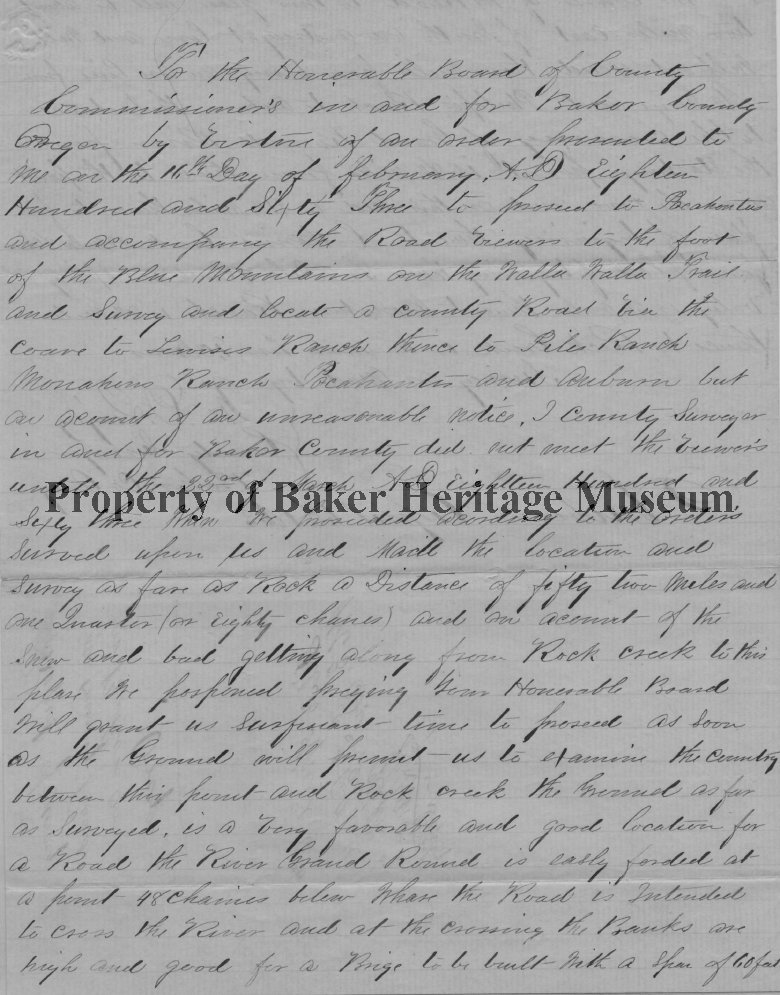 To the Honerable Board of County
Commissioner's in and for Baker County
Oregon by Virtue of an order presented to
me on the 16th Day of February, A.D Eighteen
Hundred and Sixty Three to proseed to Pocahontus
and accompany the Road Viewers to the foot
of the Blue Mountains on the Walla Walla Trail
and Survey and locate a county Road via the
Coave to Lewises Ranch thince to Piles Ranch
Monahens Ranch Pocahantis and Auburn but
on acount of an unreasonable notice, I County Surveyor
in and for Baker County did not meet the Viewers
untill the 22nd March A D Eighteen Hundred and
Property of Baker Heritage Museum
Sixty three When We proseeded acording to the Orders
Surved upon us and Made the location and
Survey as fare as Rock a Distance of fifty two Miles and
one Quarter (or Eighty chanes) and on acount of the
Snow and bad getting along from Rock creek to this
plase We postponed preying Your Honerable Board
Will grant us Surfisant time to proseed as Soon
as the Ground will premit us to examine the country
between this point and Rock creek the Ground as far
as Surveyed, is a Very favorable and good location for
a Road the River Grand Round is easly forded at
a point 48 chaines below Whare the Road is Intended
to cross the River and at the crossing the Banks are
high and good for a Brige to be built With a Span of 60 feet